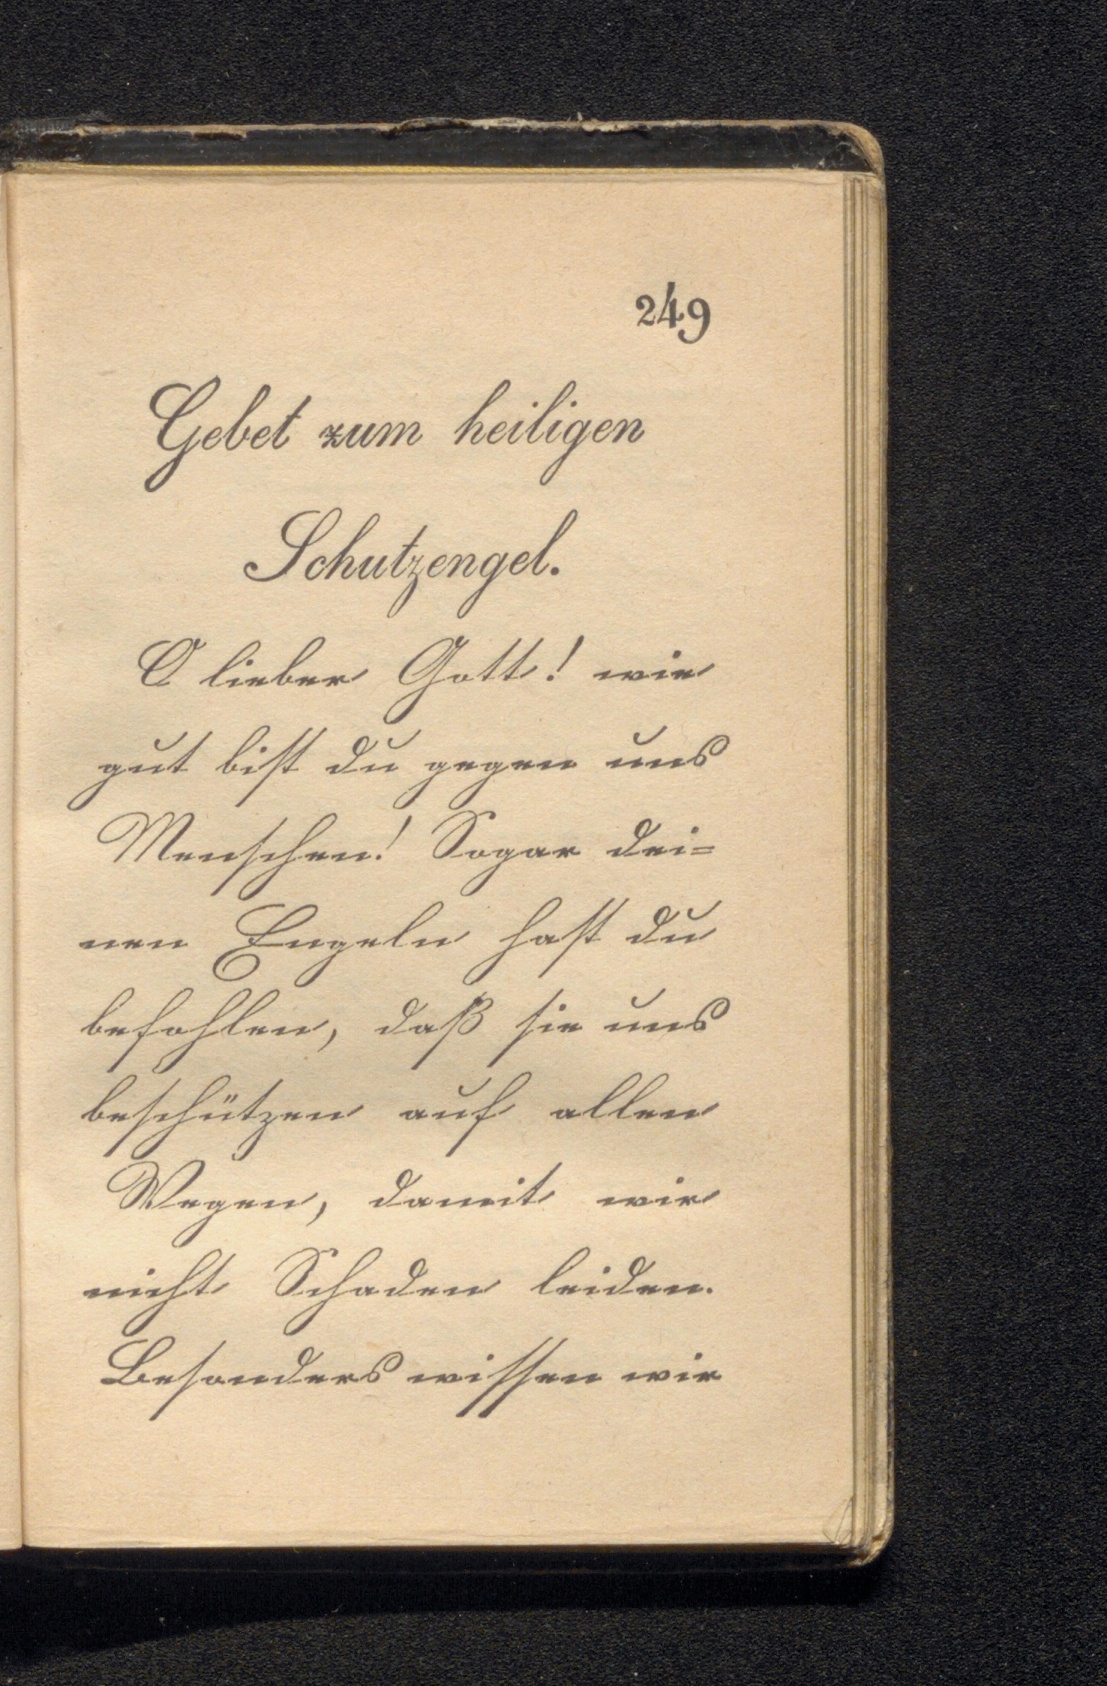 249
Gebet zum heiligen
Schutzengel.
O lieber Gott! wie
gut bist du gegen uns
Menschen! Sogar dei=
nen Engeln hast du
befohlen, daß sie uns
beschützen auf allen
Wegen, damit wir
nicht Schaden leiden.
Besonders wissen wir